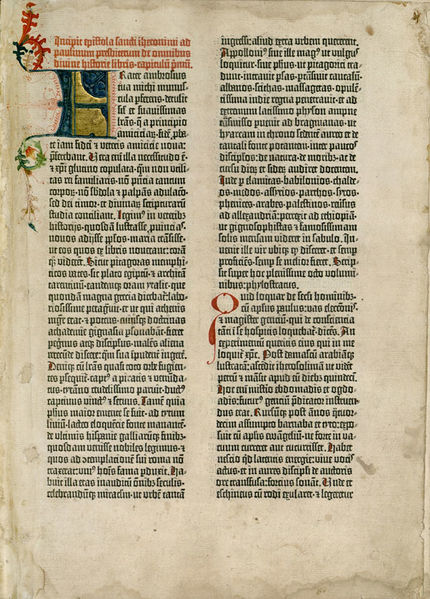 Incipit epistola sancti iheronimi ad
paulinum presbiterum de omnibus
divine historie libris. capitulū primū.
Frater ambrosius
tua michi munuscula perferens. detulit
sił et suavissimas
lrās. q̄ a principio
amiciciar̄. fidē pbate
iam fidei et veteris amicicie nova:
pferebant. Vera eni illa necessitudo ē.
et xpi glutino copulata: qm non utilitas
rei familiaris. nō pntia tantum
corpor̄. nō sbdola et palpās adulacō:
sed dei timor. et divinar̄ scripturarū
studia conciliant. Legimus in veterib̄
historijs. quosdā lustrasse puincias.
novos adijsse pplos. maria trāsisse.
ut eos quos ex libris noverant: corā
q̄z viderēt. Sicut pitagoras memphiticos
vates. sic plato egiptū. et architā
tarentinū. eandemq̄z oram ytalie. que
quondā magna grecia dicebat̄: laboriosissime
peragravit. et ut qui athenis
mgr̄ erat. et potens. cuiusq̄z doctrinas
achademie gignasia psonabāt. fieret
pegrinus atq̄z discipulus. malēs aliena
verecunde discere: q̄m sua ipudenter ingerere.
Deniq̄z cū lrās quasi toto orbe fugientes
psequit̄. capt̄ a piratis et venundatus.
tyranno crudelissimo paruit. duct̄
captivus vinct̄ et servus. Tamē quia
philosophus: maior emente se fuit. ad tytum
liviū. lacteo eloquētie fonte manantē.
de ultimis hispanie galliarūq̄z finibꝫ.
quosdam venisse nobiles legimus.
et quos ad otemplacionē sui roma nō
traxerat: unius hoīs fama pduxit. Habuit
illa etas inauditū ōnibꝫ seculis.
celebrandūq̄z miraculū. ut urbē tantā
ingressi: aliud extra urbem quererent.
Apollonius sive ille magus ut vulgus
loquitur. sive phus ut pitagorici tradunt.
intravit psas. ptransivit caucasū.
albanos. scithas. massagetas. opulētissima
indie regna penetravit. et ad
extremum latissimo physon amne
trāsmisso puenit ad bragmanas. ut
hyarcam in throno sedentē aureo et de
tantali fonte potantem. inter paucos
discipulos: de natura. de moribꝫ. ac de
cursu diei et sideꝝ audiret docentem.
Inde p elamitas. babilonios. chaldeos.
medos. assyrios. parthos. syros.
phenices. arabes. palestinos. reversus
ad allexandriā: perrexit ad ethiopiā.
ut gignosophistas et famosissimam
solis mensam videret in sabulo. Invenit
ille vir ubiq̄z qd disceret. et semp
proficiēs. semp se melior fieret. Scripsit
super hoc plenissime octo voluminibus:
phylostratus.
Quid loquar de seculi hominibꝫ.
cū aplus paulus: vas electionis.
et magister gencium. qui de consciencia
tāti i se hospitis loquebat̄ dicēs. An
experimentum queritis eius qui in me
loquit̄ xpc. Post damascū arabiāq̄z
lustratā: ascēdit iherosolimā ut videret
petrū et māsit apud eū diebꝫ quindeci.
Hoc eni misterio ebdomadis et ogdoadis:
futurꝰ genciū pdicator instruendus
erat. Rursūq̄z post ānos quatuordecim
assumpto barnaba et tyto: exposuit
cū aplis ewāgeliū. ne forte in vacuum
curreret aut cucurrisset. Habet
nescio qd latentis energie: vive vocis
actus. et in aures discipuli de auctoris
ore transfusa: forcius sonat. Unde et
eschineus cū rodi exularet. et legeretur